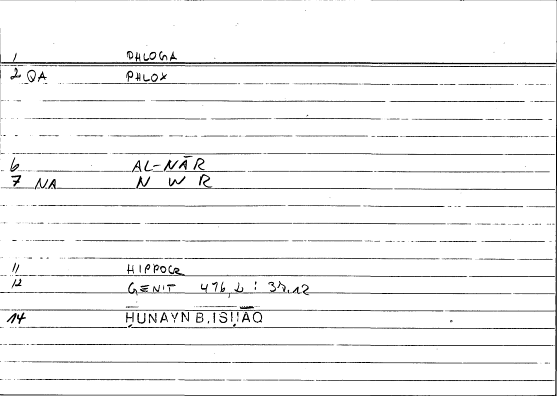 1 PHLOGA
2 QA PHLOX
6 AL-NĀR
7 NA N W R
11 HIPPOCR
12 GENIT 476, : 37.12
14 ḤUNAYN B. ISḤĀQ